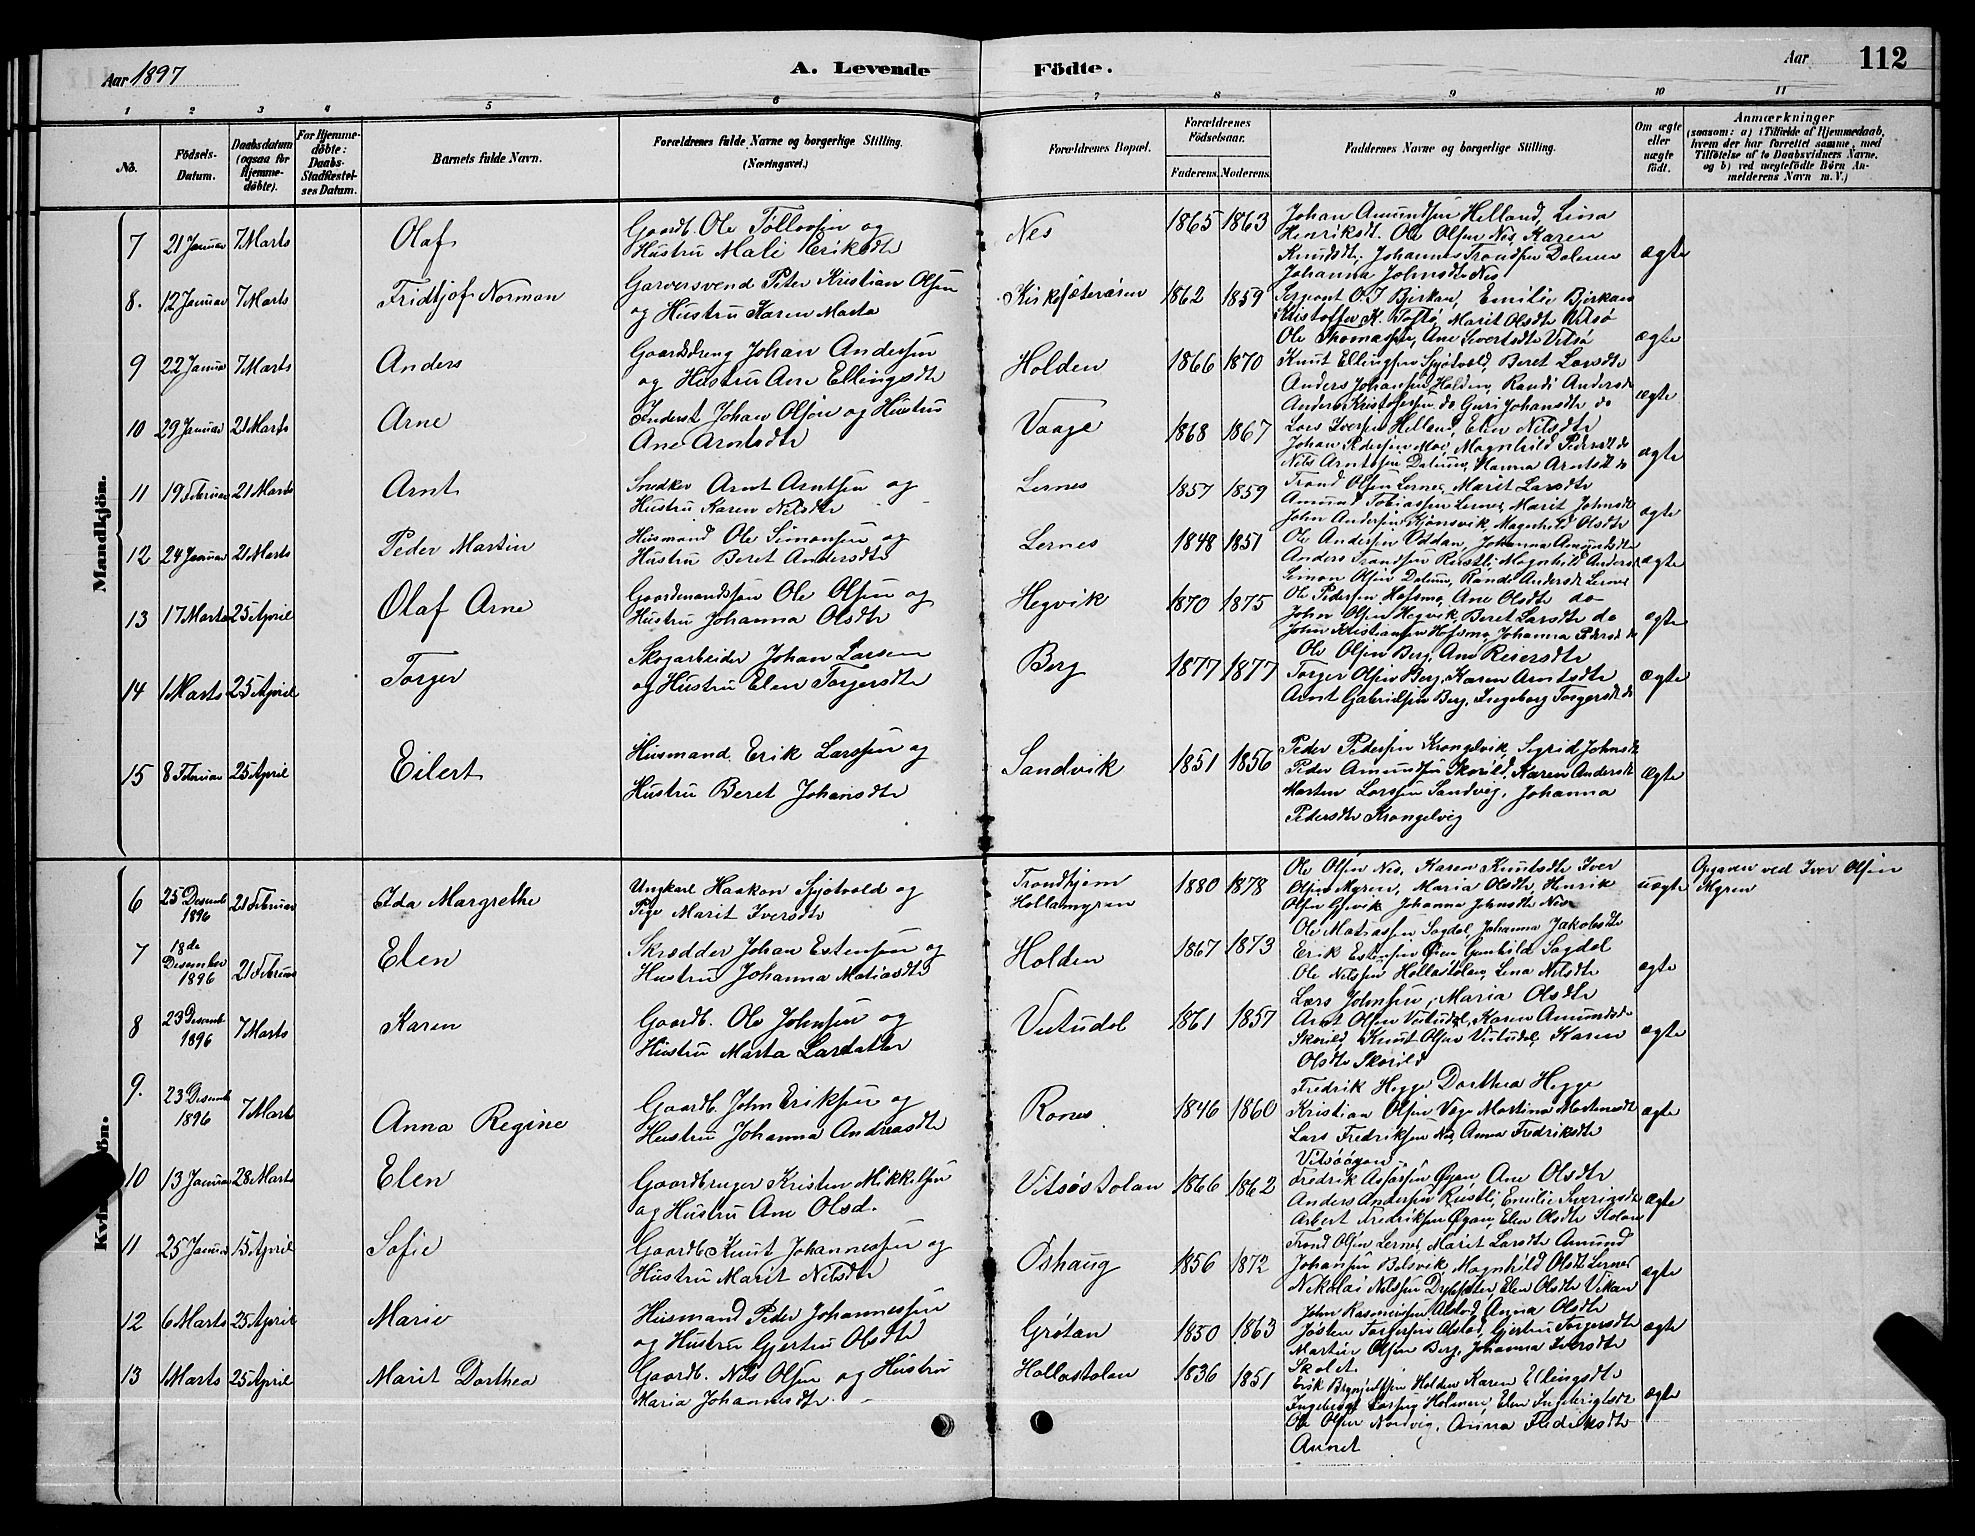 Aar 1897
A. Levende
Födte.
Aar
112
1 2 3 4 5 6 7 8 9 10 11
No.
Födsels-Datum.
Daabsdatum (ogsaa for Hjemme-döbte).
For Hjemme-döbte: Daabs-Stadfæstelses Datum.
Barnets fulde Navn.
Forældrenes fulde Navne og borgerlige Stilling. (Næringsvei.)
Forældrenes Bopæl.
Forældrenes Födselsaar.
Faderens. Moderens.
Faddernes Navne og borgerlige Stilling.
Om ægte eller uægte födt.
Anmærkninger
(saasom: a) i Tilfælde af Hjemmedaab, hvem der har forrettet samme, med Tilföielse af to Daabsvidners Navne, og b) ved uægtefödte Börn Anmelderens Navn m. V.)
Mandkjön.
7 21 Januar 7 Marts Olaf
Gaardb. Ole Tollevsen og
Hustru Mali Eriksdtr
Nes 1865 1863
Johan Amundsen Helland, Lina
Henriksdt. Ole Olsen Nes, Karen
Knudsdt. Johannes Trondsen Dalum
Johanna Johnsdtr Nes
ægte
8. 12 Januar 7 Marts Fridtjof Norman
Garversvend Peter Kristian Olsen
og Hustru Karen Marta
Kirksæterøren 1862 1859
O. J Bjerkan, Emilie Bjerkan
Kristoffer K. Toftø, Marit Olsdtr Vitsø
Ole Thomasen, Ane Sivertsdtr Vitsø
ægte
9 22 Januar 7 Marts Anders
Gaardsdreng Johan Andersen
og Hustru Ane Ellingsdtr
Holden 1866 1870
Knut Ellingsen Sjøtvold, Beret Larsdtr
Anders Johansen Holden, Randi Andersd
Anders Kristofersen do Guri Johansdtr do
ægte
10 29 Januar 21 Marts Arne
Inderst Johan Olsen og Hustru
Ane Arntsdtr
Vaage 1868 1867
Lars Iversen Helland, Elen Nilsdtr
Johan Pedersen Moe, Magnhild Pedersdt do
Nils Arntsen Dalum, Hanna Arntsdt do
ægte
11 19 Februar 21 Marts Arnt
Snedker Arnt Arntsen og
Hustru Karen Nilsdtr
Lernes 1857 1859
Trond Olsen Lernes, Marit Larsdtr
Amund Tobiassen Lernes, Marit Johnsdt
John Andersen Kjønsvik, Magnhild Olsdtr
ægte
12 24 Januar 21 Marts Peder Martin
Husmand Ole Simonsen og
Hustru Beret Andersdtr
Lernes 1848 1851
Ole Andersen Oddan, Johanna Amundsdtr
Anders Trondsen Rustli, Magnhild Andersd
Simon Olsen Dalum, Randi Andersdt Lernes
ægte
13 17 Marts 25 April Olaf Arne
Gaardmandssøn Ole Olsen og
Hustru Johanna Olsdtr
Hegvik 1870 1875
Ole Pedersen Hofsmo, Ane Olsdtr do
John Olsen Hegvik, Beret Larsdtr do
John Kristiansen Hofsmo, Johanna Pedersdt do
ægte
14 1 Marts 25 April Torger
Skogarbeider Johan Larsen
og Hustru Elen Torgersdtr
Berg 1877 1877
Ole Olsen Berg, Ane Reiersdtr
Torger Olsen Berg, Karen Arntsdtr
Arnt Gabrielsen Berg, Ingeborg Torgersdt do
ægte
15 8 Februar 25 April Eilert
Husmand Erik Larssen og
Hustru Beret Johansdtr
Sandvik 1851 1856
Peder Pedersen Krongelvik, Sigrid Johnsdt
Peder Amundsen Skorild, Karen Andersdt
Morten Larssen Sandvig, Johanna
Pedersdtr Krongelvig
ægte
Kvi ön.
6 25 Desemb 1896 21 Februar Ida Margrethe
Ungkarl Haakon Sjøtvold og
Pige Marit Iversdtr
Trondhjem
Hollamyran
1880 1878
Ole Olsen Nes, Karen Knutsdtr Iver
Olsen Myren, Maria Olsdtr, Henrik
Olsen Gjevik Johanna Johnsdtr Nes
uægte
Opgaven ved Iver Olsen
Myren
7 18de Desember 1896 21 Februar Elen
Skrædder Johan Estensen og
Hustru Johanna Matiasdtr
Holden 1867 1873
Ole Matiassen Sagdal, Johanna Jakobsdtr
Erik Estensen Øien, Gunhild Sagdal
Ole Nilsen Hollastølen, Lina Nilsdtr
ægte
8 23 Desemb 1896 7 Marts Karen
Gaardb. Ole Johnsen og
Hustru Marta Larsdatter
Vutudal 1861 1857
Lars Johnsen, Maria Olsdtr
Arnt Olsen Vutudal, Karen Amundsdtr
Skorild, Knut Olsen Vutudal, Karen
Olsdtr Skorild
ægte
9. 23 Desemb 1896 7 Marts Anna Regine
Gaardb. John Eriksen og
Hustru Johanna Andreasdtr
Rones 1846 1860
Fredrik Hegge Dorthea Hegge
Kristian Olsen Vage Martina Mortensdt
Lars Fredriksen Nes, Anna Fredriksdtr
Vitsøøgan
ægte
10 13 Januar 28 Marts Elen
Gaardbruger Kristen Mikkelsen
og Hustru Ane Olsd.
Vitsøstølan 1866 1862
Fredrik Øyan, Ane Olsdtr
Anders Andersen Rustli, Emilie Sverigsdtr
Arbert Fredriksen Øyan, Elen Olsdtr Stølan
ægte
11 25 Januar 15 April Sofie
Gaardb. Knut Johannessen og
Hustru Marit Nilsdtr
Oshaug 1856 1872
Trond Olsen Lernes, Marit Larsdtr Amund
Johansen Belsvik, Magnhild Olsdt Lernes
Nikolai Nilssen , Elen Olsdtr Vikan
ægte
12 6 Marts 25 April Marie
Husmand Peder Johannessen
og Hustru Gjertru Olsdtr
Grøtan 1850 1863
John Rasmussen Alstad, Anna Olsdtr
Josten Torgersen Alstad, Gjertru Torgersdtr
Martin Olsen Berg, Johanna Iversdtr
Skolet.
ægte
13 1 Marts 25 April Marit Dorthea
Gaardb. Nils Olsen og Hustru
Maria Johannesdtr.
Hollastølan 1836 1851
Erik Brynjulfsen Holden Karen Ellingsdtr
Ingebrigt Larsen Holmen, Elen Ingebrigtsdt
Ole Olsen Nordvig, Anna Fredriksdtr
Aunet
ægte